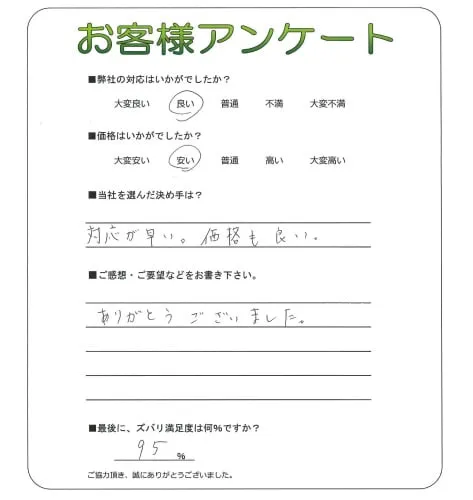 お客様アンケート
■弊社の対応はいかがでしたか？
大変良い 良い 普通 不満 大変不満
■価格はいかがでしたか？
大変安い 安い 普通 高い 大変高い
■当社を選んだ決め手は？
対応が早い。価格も良い。
■ご感想・ご要望などをお書き下さい。
ありがとうございました。
■最後に、ズバリ満足度は何％ですか？
95 ％
ご協力頂き、誠にありがとうございました。